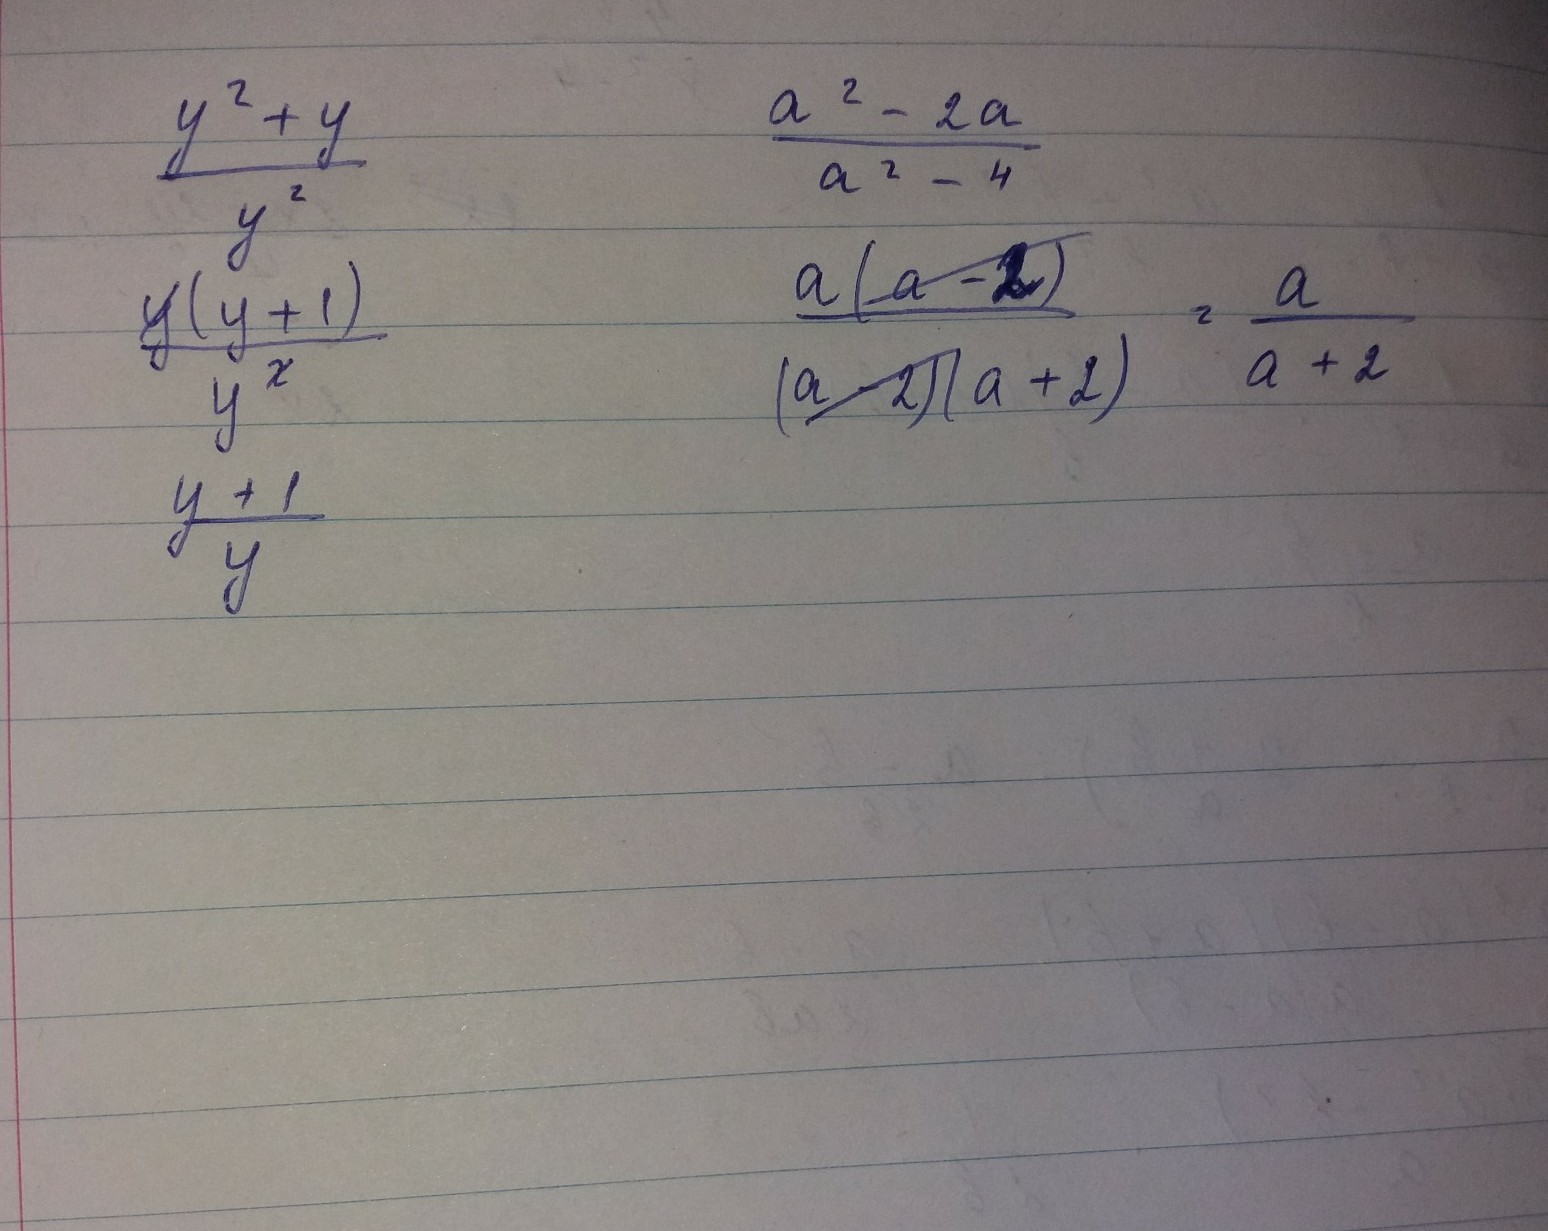 y² + y
y²
y(y + 1)
y²
y + 1
y
a² - 2a
a² - 4
a(a - 2)
(a - 2)(a + 2)
= a
a + 2